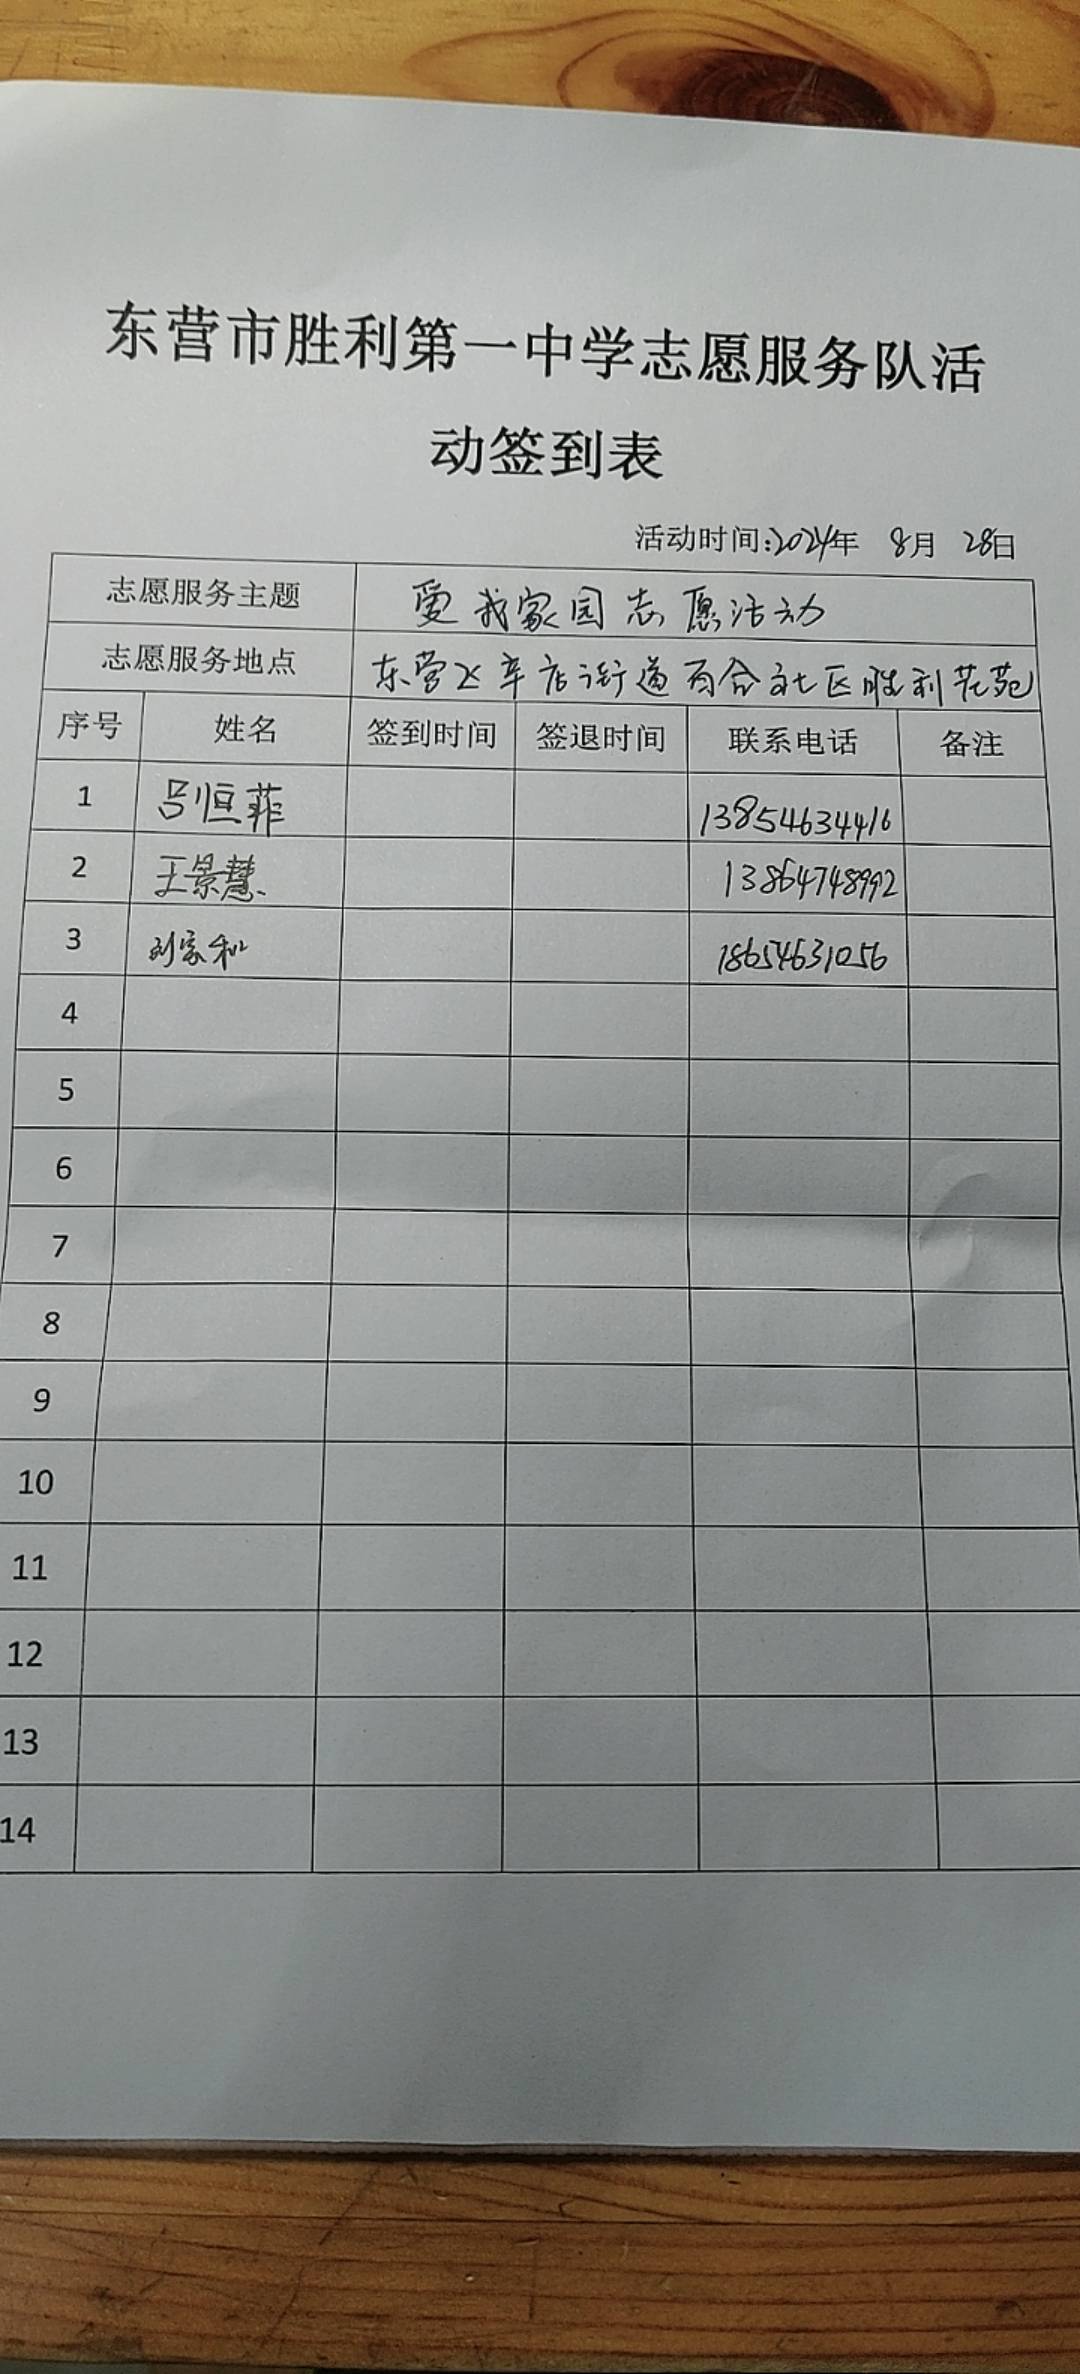 东营市胜利第一中学志愿服务队活
动签到表
活动时间:2024年 8月 28日
志愿服务主题 爱我家园志愿活动
志愿服务地点 东营区辛店街道百合社区胜利花苑
序号 姓名 签到时间 签退时间 联系电话 备注
1 吕恒菲 13854634416
2 王景慧 13864748992
3 刘家和 18654631056
4
5
6
7
8
9
10
11
12
13
14